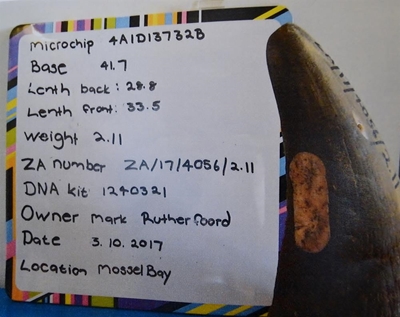 microchip 4A1D13732B
Base 41.7
Lenth back: 28.8
Lenth front: 33.5
Weight 2.11
ZA number ZA/17/4056/2.11
DNA kit 1240321
Owner Mark Rutherfoord
Date 3.10.2017
Location Mossel Bay